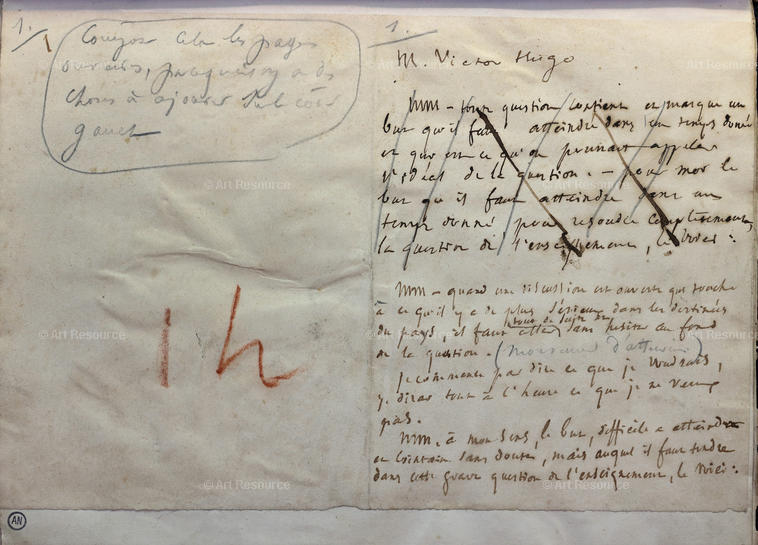 1.
1
Composer cela les pages
ouvertes, parce qu'il y a des
choses à ajouter sur le côté
gauche
1 h
AN
1.
M. Victor Hugo
MM – toute question contient et marque un
but qu'il faut atteindre dans un temps donné
et qui est ce qu'on pourrait appeler
l'idéal de la question. – pour moi le
but qu'il faut atteindre dans un
temps donné pour résoudre complètement
la question de l'enseignement, le voici :
MM – quand une discussion est ouverte qui touche
à ce qu'il y a de plus sérieux dans les destinées
du pays, il faut aller tout de suite et sans hésiter au fond
de la question. (Mouvement d'attention)
je commence par dire ce que je voudrais,
je dirai tout à l'heure ce que je ne veux
pas.
MM, à mon sens, le but, difficile à atteindre
et lointain sans doute, mais auquel il faut tendre
dans cette grave question de l'enseignement, le voici :
© Art Resource
© Art Resource
© Art Resource
© Art Resource
© Art Resource
© Art Resource